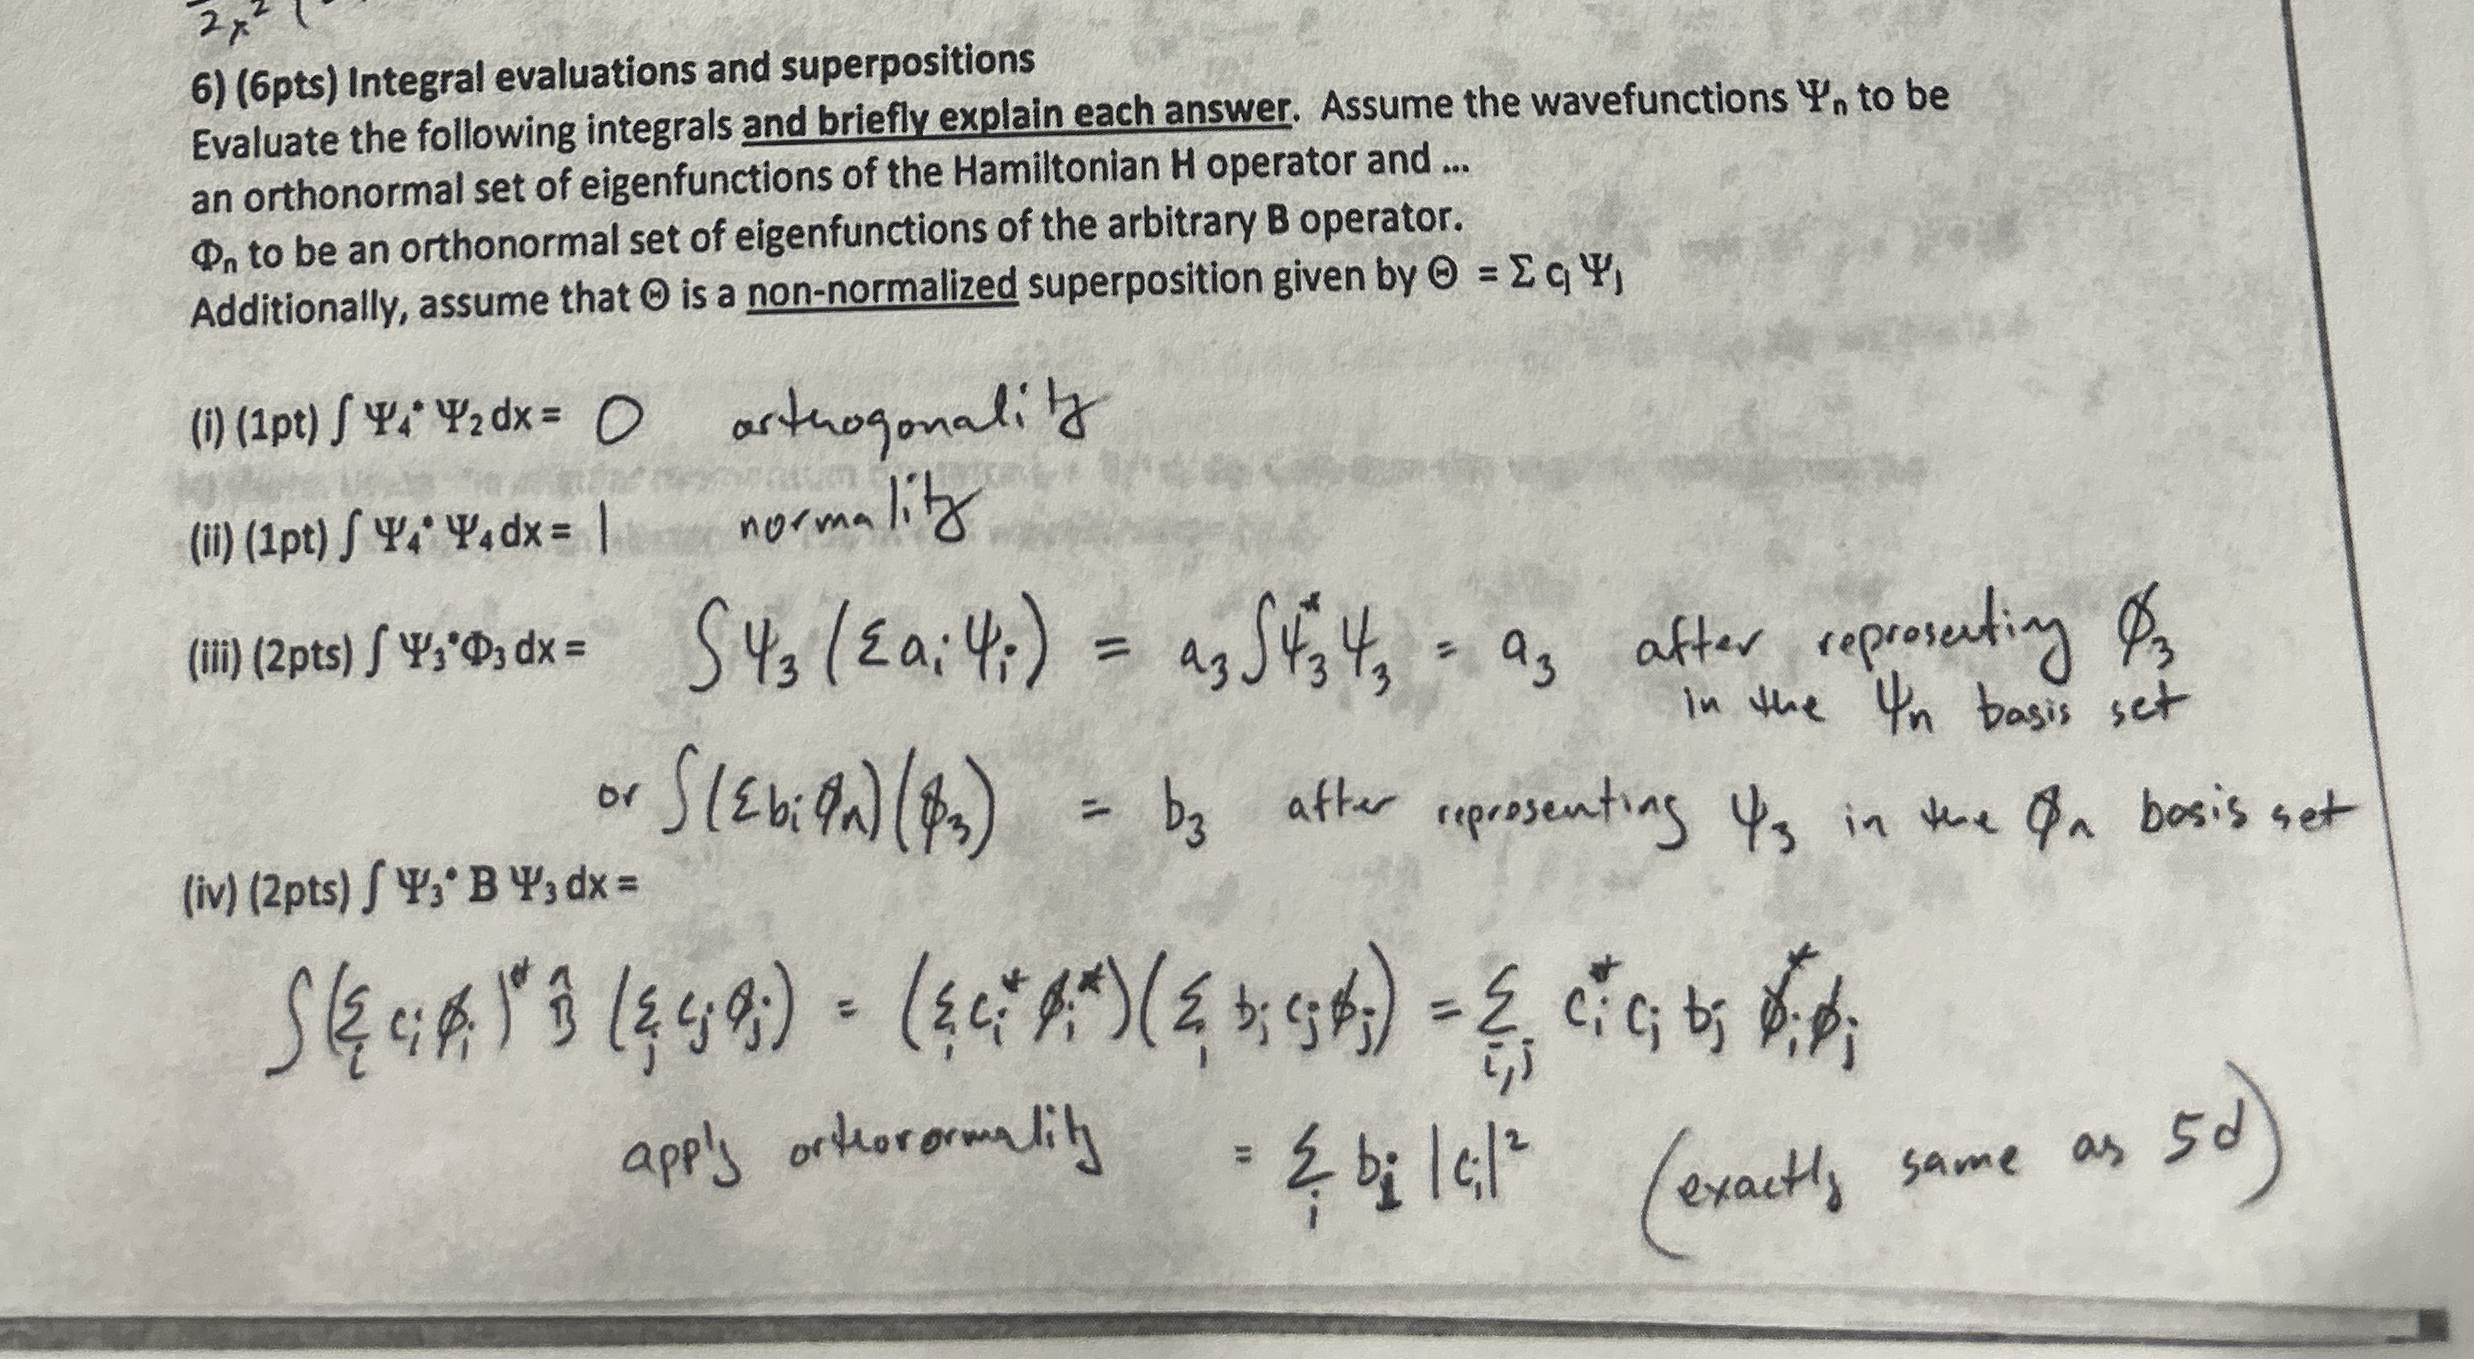 2x²
6) (6pts) Integral evaluations and superpositions
Evaluate the following integrals and briefly explain each answer. Assume the wavefunctions Ψₙ to be
an orthonormal set of eigenfunctions of the Hamiltonian H operator and ...
Φₙ to be an orthonormal set of eigenfunctions of the arbitrary B operator.
Additionally, assume that Θ is a non-normalized superposition given by Θ = Σ cⱼ Ψⱼ
(i) (1pt) ∫ Ψ₄* Ψ₂ dx = 0 orthogonality
(ii) (1pt) ∫ Ψ₄* Ψ₄ dx = 1 normality
(iii) (2pts) ∫ Ψ₃*Φ₃ dx = ∫ψ₃ (Σaᵢ ψᵢ) = a₃∫ψ₃* ψ₃ = a₃ after representing ϕ₃
in the ψₙ basis set
or ∫(Σbᵢ ϕₙ)(ϕ₃) = b₃ after representing ψ₃ in the ϕₙ basis set
(iv) (2pts) ∫ Ψ₃* B Ψ₃ dx =
∫(Σᵢ cᵢ ϕᵢ)* B̂ (Σⱼ cⱼ ϕⱼ) = (Σᵢ cᵢ* ϕᵢ*)(Σⱼ bⱼ cⱼ ϕⱼ) = Σᵢ,ⱼ cᵢ* cⱼ bⱼ ϕᵢ* ϕⱼ
apply orthonormality = Σᵢ bᵢ |cᵢ|² (exactly same as 5d)